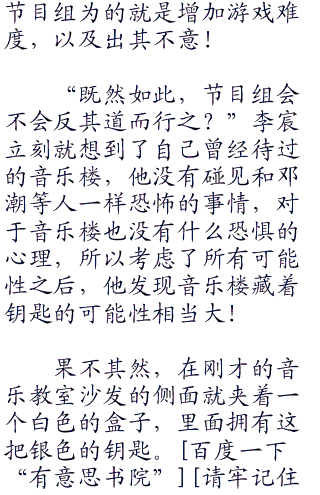 节目组为的就是增加游戏难
度，以及出其不意！
“既然如此，节目组会
不会反其道而行之？”李宸
立刻就想到了自己曾经待过
的音乐楼，他没有碰见和邓
潮等人一样恐怖的事情，对
于音乐楼也没有什么恐惧的
心理，所以考虑了所有可能
性之后，他发现音乐楼藏着
钥匙的可能性相当大！
果不其然，在刚才的音
乐教室沙发的侧面就夹着一
个白色的盒子，里面拥有这
把银色的钥匙。[百度一下
“有意思书院”][请牢记住